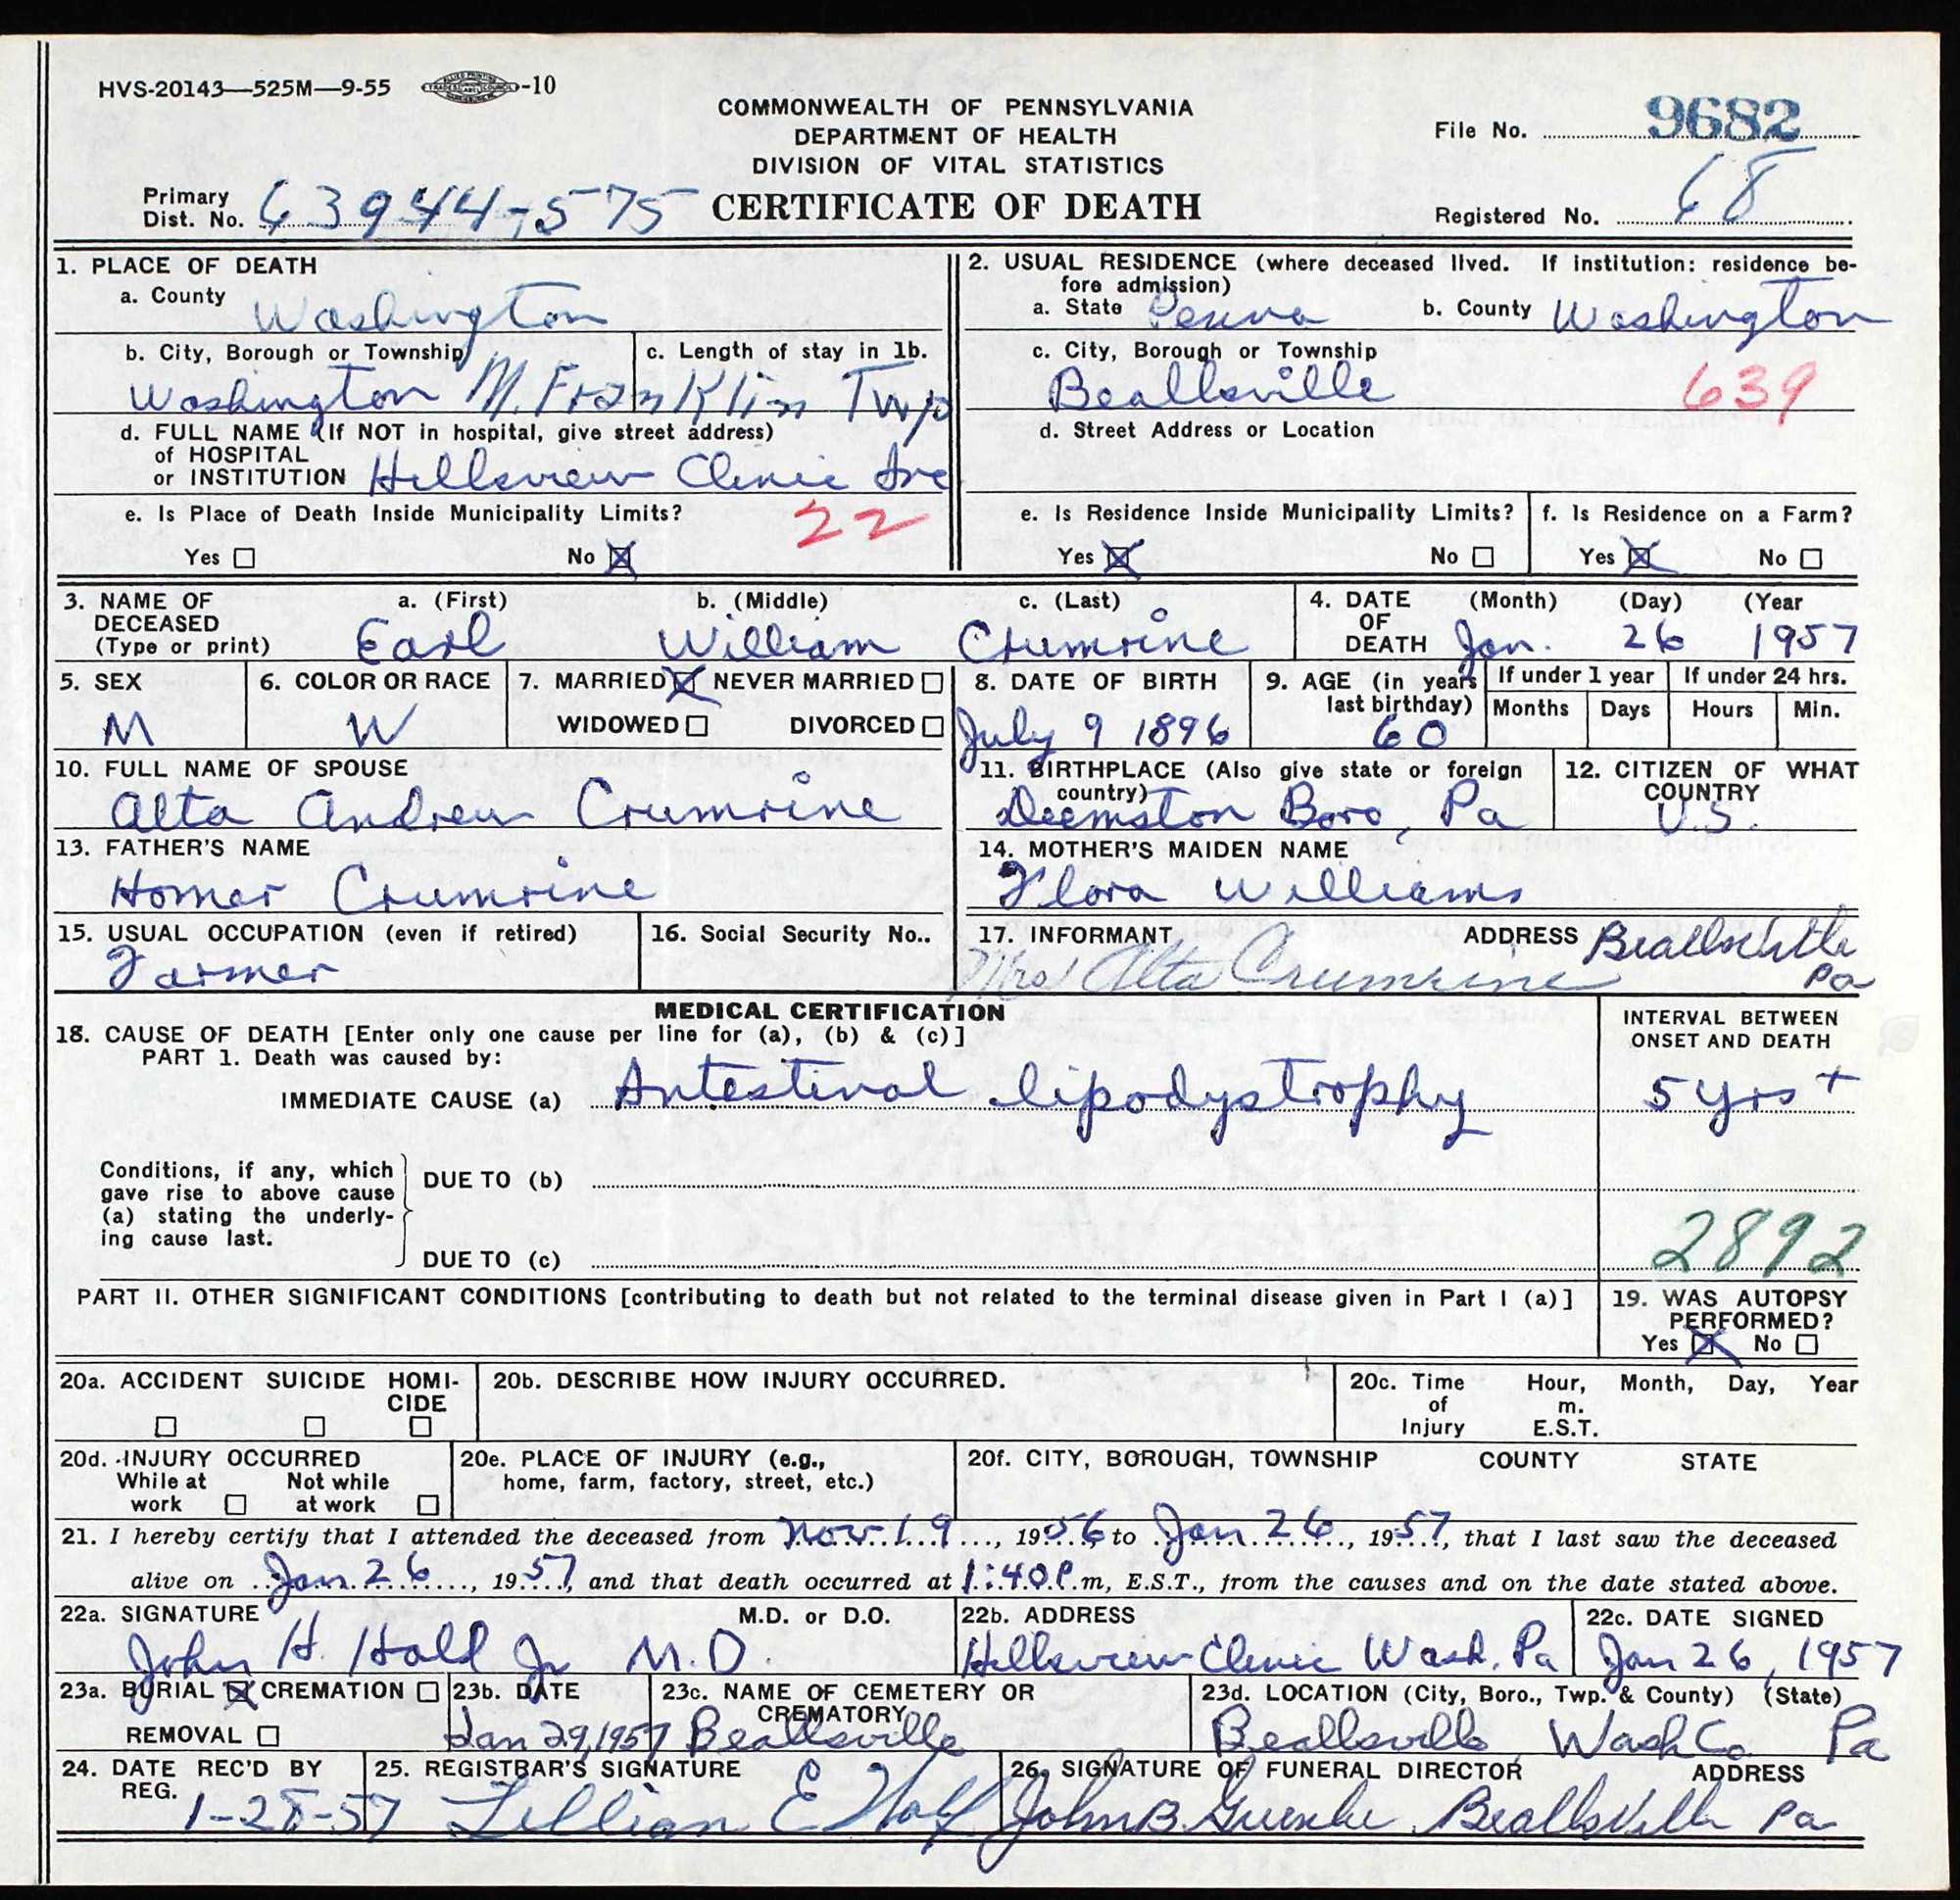 HVS-20143—525M—9-55 -10
COMMONWEALTH OF PENNSYLVANIA
DEPARTMENT OF HEALTH
DIVISION OF VITAL STATISTICS
CERTIFICATE OF DEATH
File No. 9682
Registered No. 68
Primary
Dist. No. 63944-575
1. PLACE OF DEATH
a. County Washington
b. City, Borough or Township
Washington N. Franklin Twp
c. Length of stay in 1b.
d. FULL NAME (If NOT in hospital, give street address)
of HOSPITAL
or INSTITUTION Hillsview Clinic Inc
e. Is Place of Death Inside Municipality Limits? 22
Yes No X
2. USUAL RESIDENCE (where deceased lived. If institution: residence be-
fore admission)
a. State Penna b. County Washington
c. City, Borough or Township
Beallsville 639
d. Street Address or Location
e. Is Residence Inside Municipality Limits?
Yes X No
f. Is Residence on a Farm?
Yes X No
3. NAME OF
DECEASED
(Type or print)
a. (First) b. (Middle) c. (Last)
Earl William Crumrine
4. DATE
OF
DEATH
(Month) (Day) (Year
Jan. 26 1957
5. SEX
M
6. COLOR OR RACE
W
7. MARRIED X NEVER MARRIED
WIDOWED DIVORCED
8. DATE OF BIRTH
July 9 1896
9. AGE (in years
last birthday)
60
If under 1 year
Months Days
If under 24 hrs.
Hours Min.
10. FULL NAME OF SPOUSE
Alta Andrew Crumrine
11. BIRTHPLACE (Also give state or foreign
country)
Deemston Boro, Pa
12. CITIZEN OF WHAT
COUNTRY
U.S.
13. FATHER'S NAME
Homer Crumrine
14. MOTHER'S MAIDEN NAME
Flora Williams
15. USUAL OCCUPATION (even if retired)
Farmer
16. Social Security No..
17. INFORMANT ADDRESS Beallsville
Mrs Alta Crumrine Pa
MEDICAL CERTIFICATION
18. CAUSE OF DEATH [Enter only one cause per line for (a), (b) & (c)]
PART 1. Death was caused by:
IMMEDIATE CAUSE (a) Intestinal lipodystrophy
INTERVAL BETWEEN
ONSET AND DEATH
5 yrs +
Conditions, if any, which
gave rise to above cause
(a) stating the underly-
ing cause last.
DUE TO (b)
DUE TO (c)
2892
PART II. OTHER SIGNIFICANT CONDITIONS [contributing to death but not related to the terminal disease given in Part I (a)]
19. WAS AUTOPSY
PERFORMED?
Yes X No
20a. ACCIDENT SUICIDE HOMI-
CIDE
20b. DESCRIBE HOW INJURY OCCURRED.
20c. Time
of
Injury
Hour, Month, Day, Year
m.
E.S.T.
20d. INJURY OCCURRED
While at
work
Not while
at work
20e. PLACE OF INJURY (e.g.,
home, farm, factory, street, etc.)
20f. CITY, BOROUGH, TOWNSHIP COUNTY STATE
21. I hereby certify that I attended the deceased from Nov 19, 1956 to Jan 26, 1957, that I last saw the deceased
alive on Jan 26, 1957, and that death occurred at 1:40 P.m, E.S.T., from the causes and on the date stated above.
22a. SIGNATURE M.D. or D.O.
John H. Hall Jr M.D.
22b. ADDRESS
Hillsview Clinic Wash. Pa
22c. DATE SIGNED
Jan 26, 1957
23a. BURIAL X CREMATION
REMOVAL
23b. DATE
Jan 29, 1957
23c. NAME OF CEMETERY OR
CREMATORY
Beallsville
23d. LOCATION (City, Boro., Twp. & County) (State)
Beallsville, Wash Co. Pa
24. DATE REC'D BY
REG.
1-28-57
25. REGISTRAR'S SIGNATURE
Lillian E
26. SIGNATURE OF FUNERAL DIRECTOR ADDRESS
John B Beallsville Pa